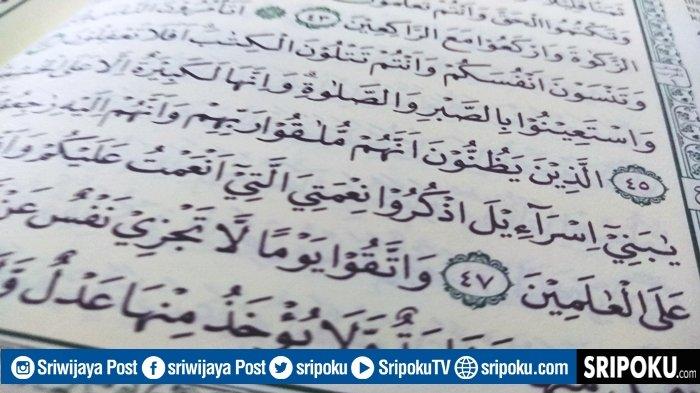 وَتَكْتُمُوا الْحَقَّ وَاَنْتُمْ
الزَّكٰوةَ وَارْكَعُوْا مَعَ الرَّاكِعِيْنَ ٤٣
وَتَنْسَوْنَ اَنْفُسَكُمْ وَاَنْتُمْ تَتْلُوْنَ الْكِتٰبَۗ اَفَلَا
وَاسْتَعِيْنُوْا بِالصَّبْرِ وَالصَّلٰوةِۗ وَاِنَّهَا لَكَبِيْرَةٌ اِلَّا عَلَى
٤٥ الَّذِيْنَ يَظُنُّوْنَ اَنَّهُمْ مُّلٰقُوْا رَبِّهِمْ وَاَنَّهُمْ اِلَيْهِ
يٰبَنِيْٓ اِسْرَاۤءِيْلَ اذْكُرُوْا نِعْمَتِيَ الَّتِيْٓ اَنْعَمْتُ عَلَيْكُمْ
عَلَى الْعٰلَمِيْنَ ٤٧ وَاتَّقُوْا يَوْمًا لَّا تَجْزِيْ نَفْسٌ عَنْ
وَّلَا يُؤْخَذُ مِنْهَا عَدْلٌ
Sriwijaya Post sriwijaya Post sripoku SripokuTV sripoku.com SRIPOKU.com